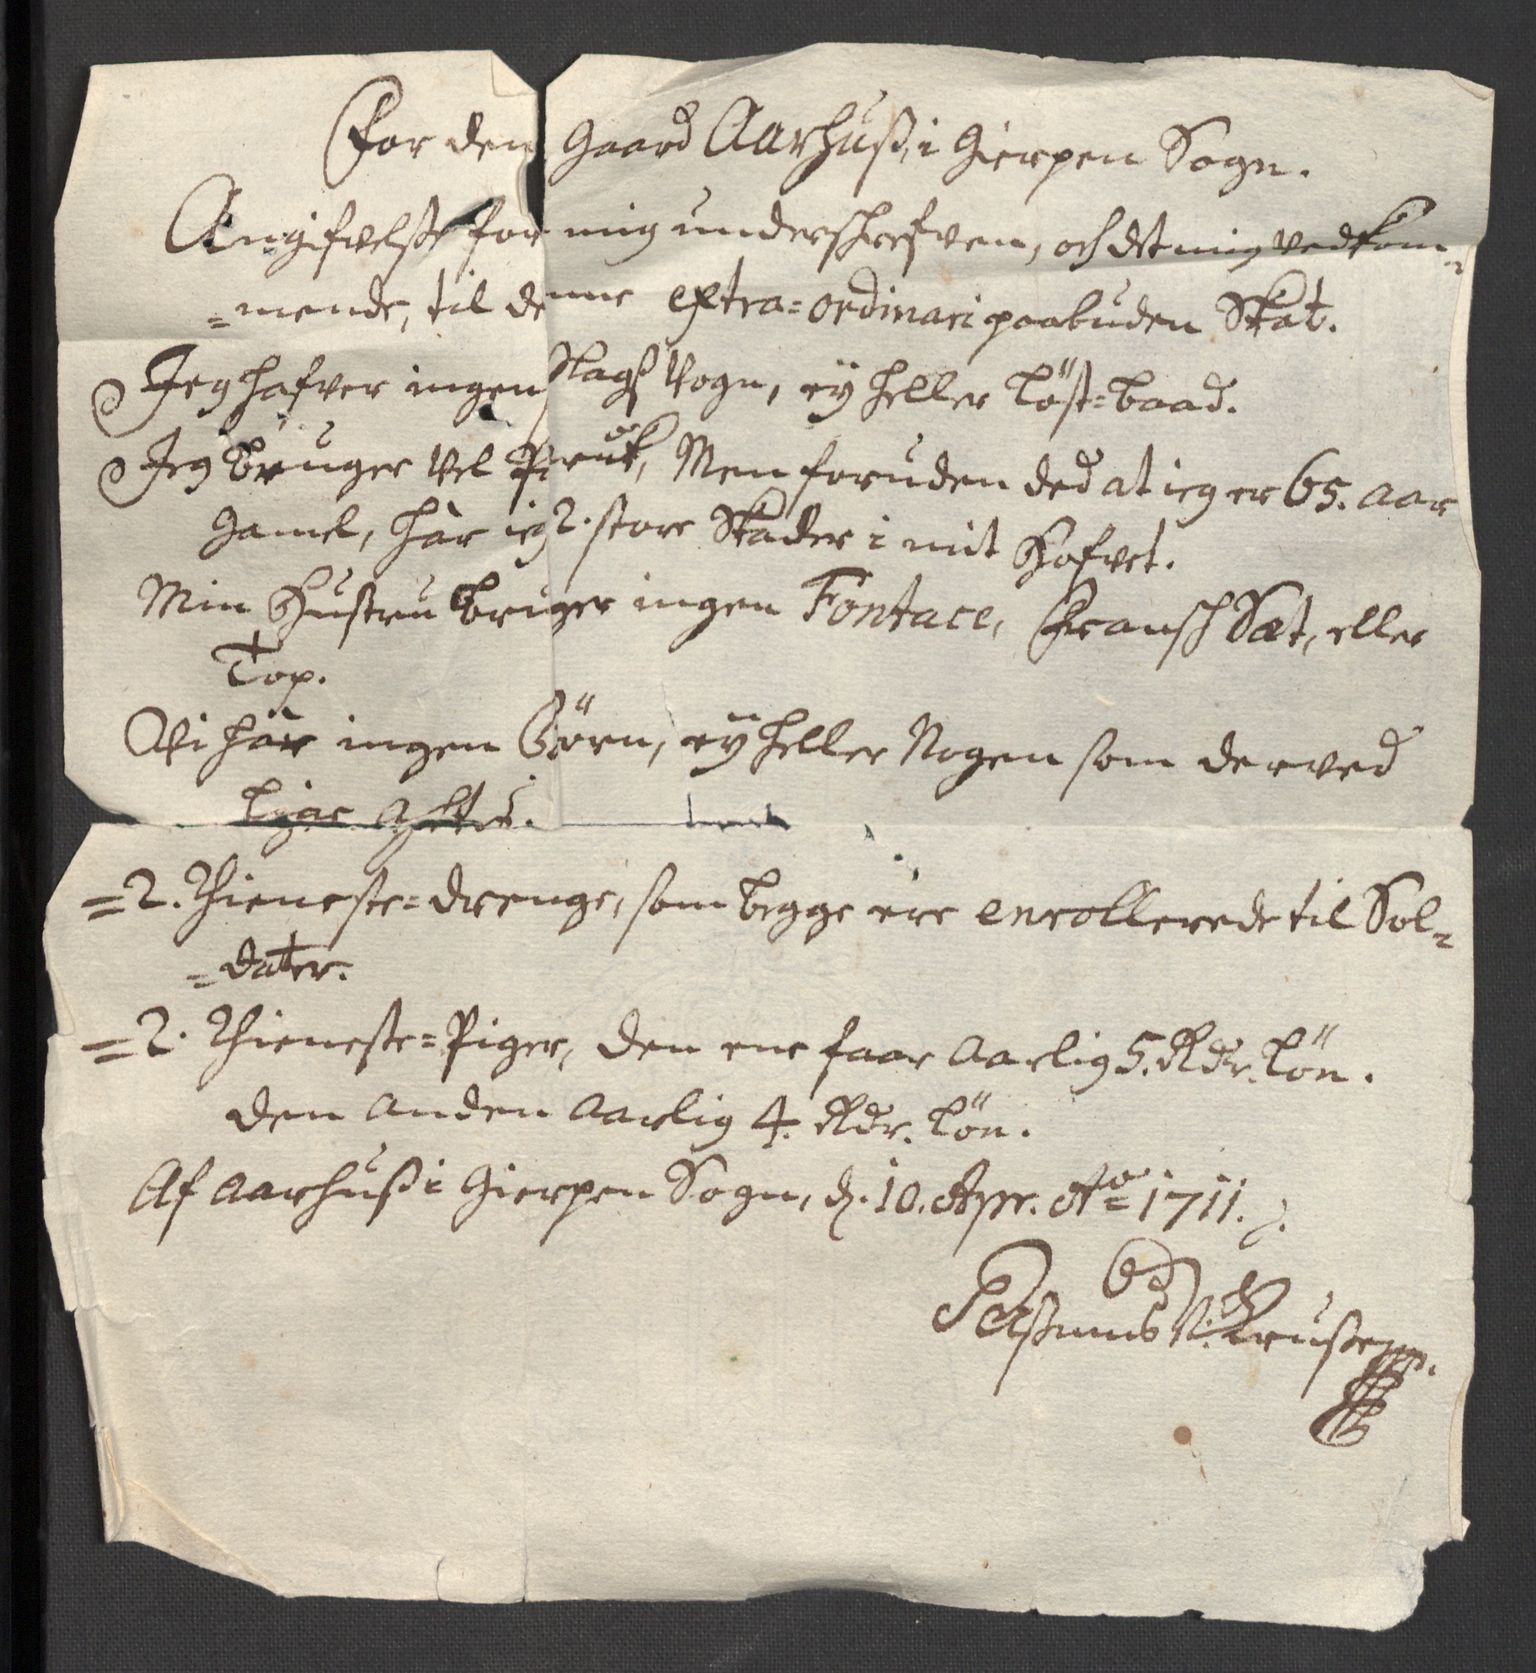 For den Gaard Aarhuß, i Gierpen Sogn.
Angifvelße for mig underschrefven, och det mig vedkom-
=mende, til denne extra=ordinari paabuden Skat.
Jeg hafver ingen slags Vogn, eÿ heller Löst=baad.
Jeg bruger vel Peruk, Men foruden ded at ieg er 65. aar
gamel, hàr ieg 2. store Skader i mit Hofvet.
Min Hustru bruger ingen Fontace, Fransch Sæt, eller
Top.
Vi hàr ingen Börn, eÿ heller Nogen som derved
=2. Thieneste=drenge, som begge ere enrollerede til Sol-
=dater.
=2. Thieneste=Piger, den ene faar aarlig 5. Rdr. Lön.
den anden aarlig 4. Rdr. Lön.
Af Aarhuß i Gierpen Sogn, d. 10. Apr. Ao 1711.
N. Kruße